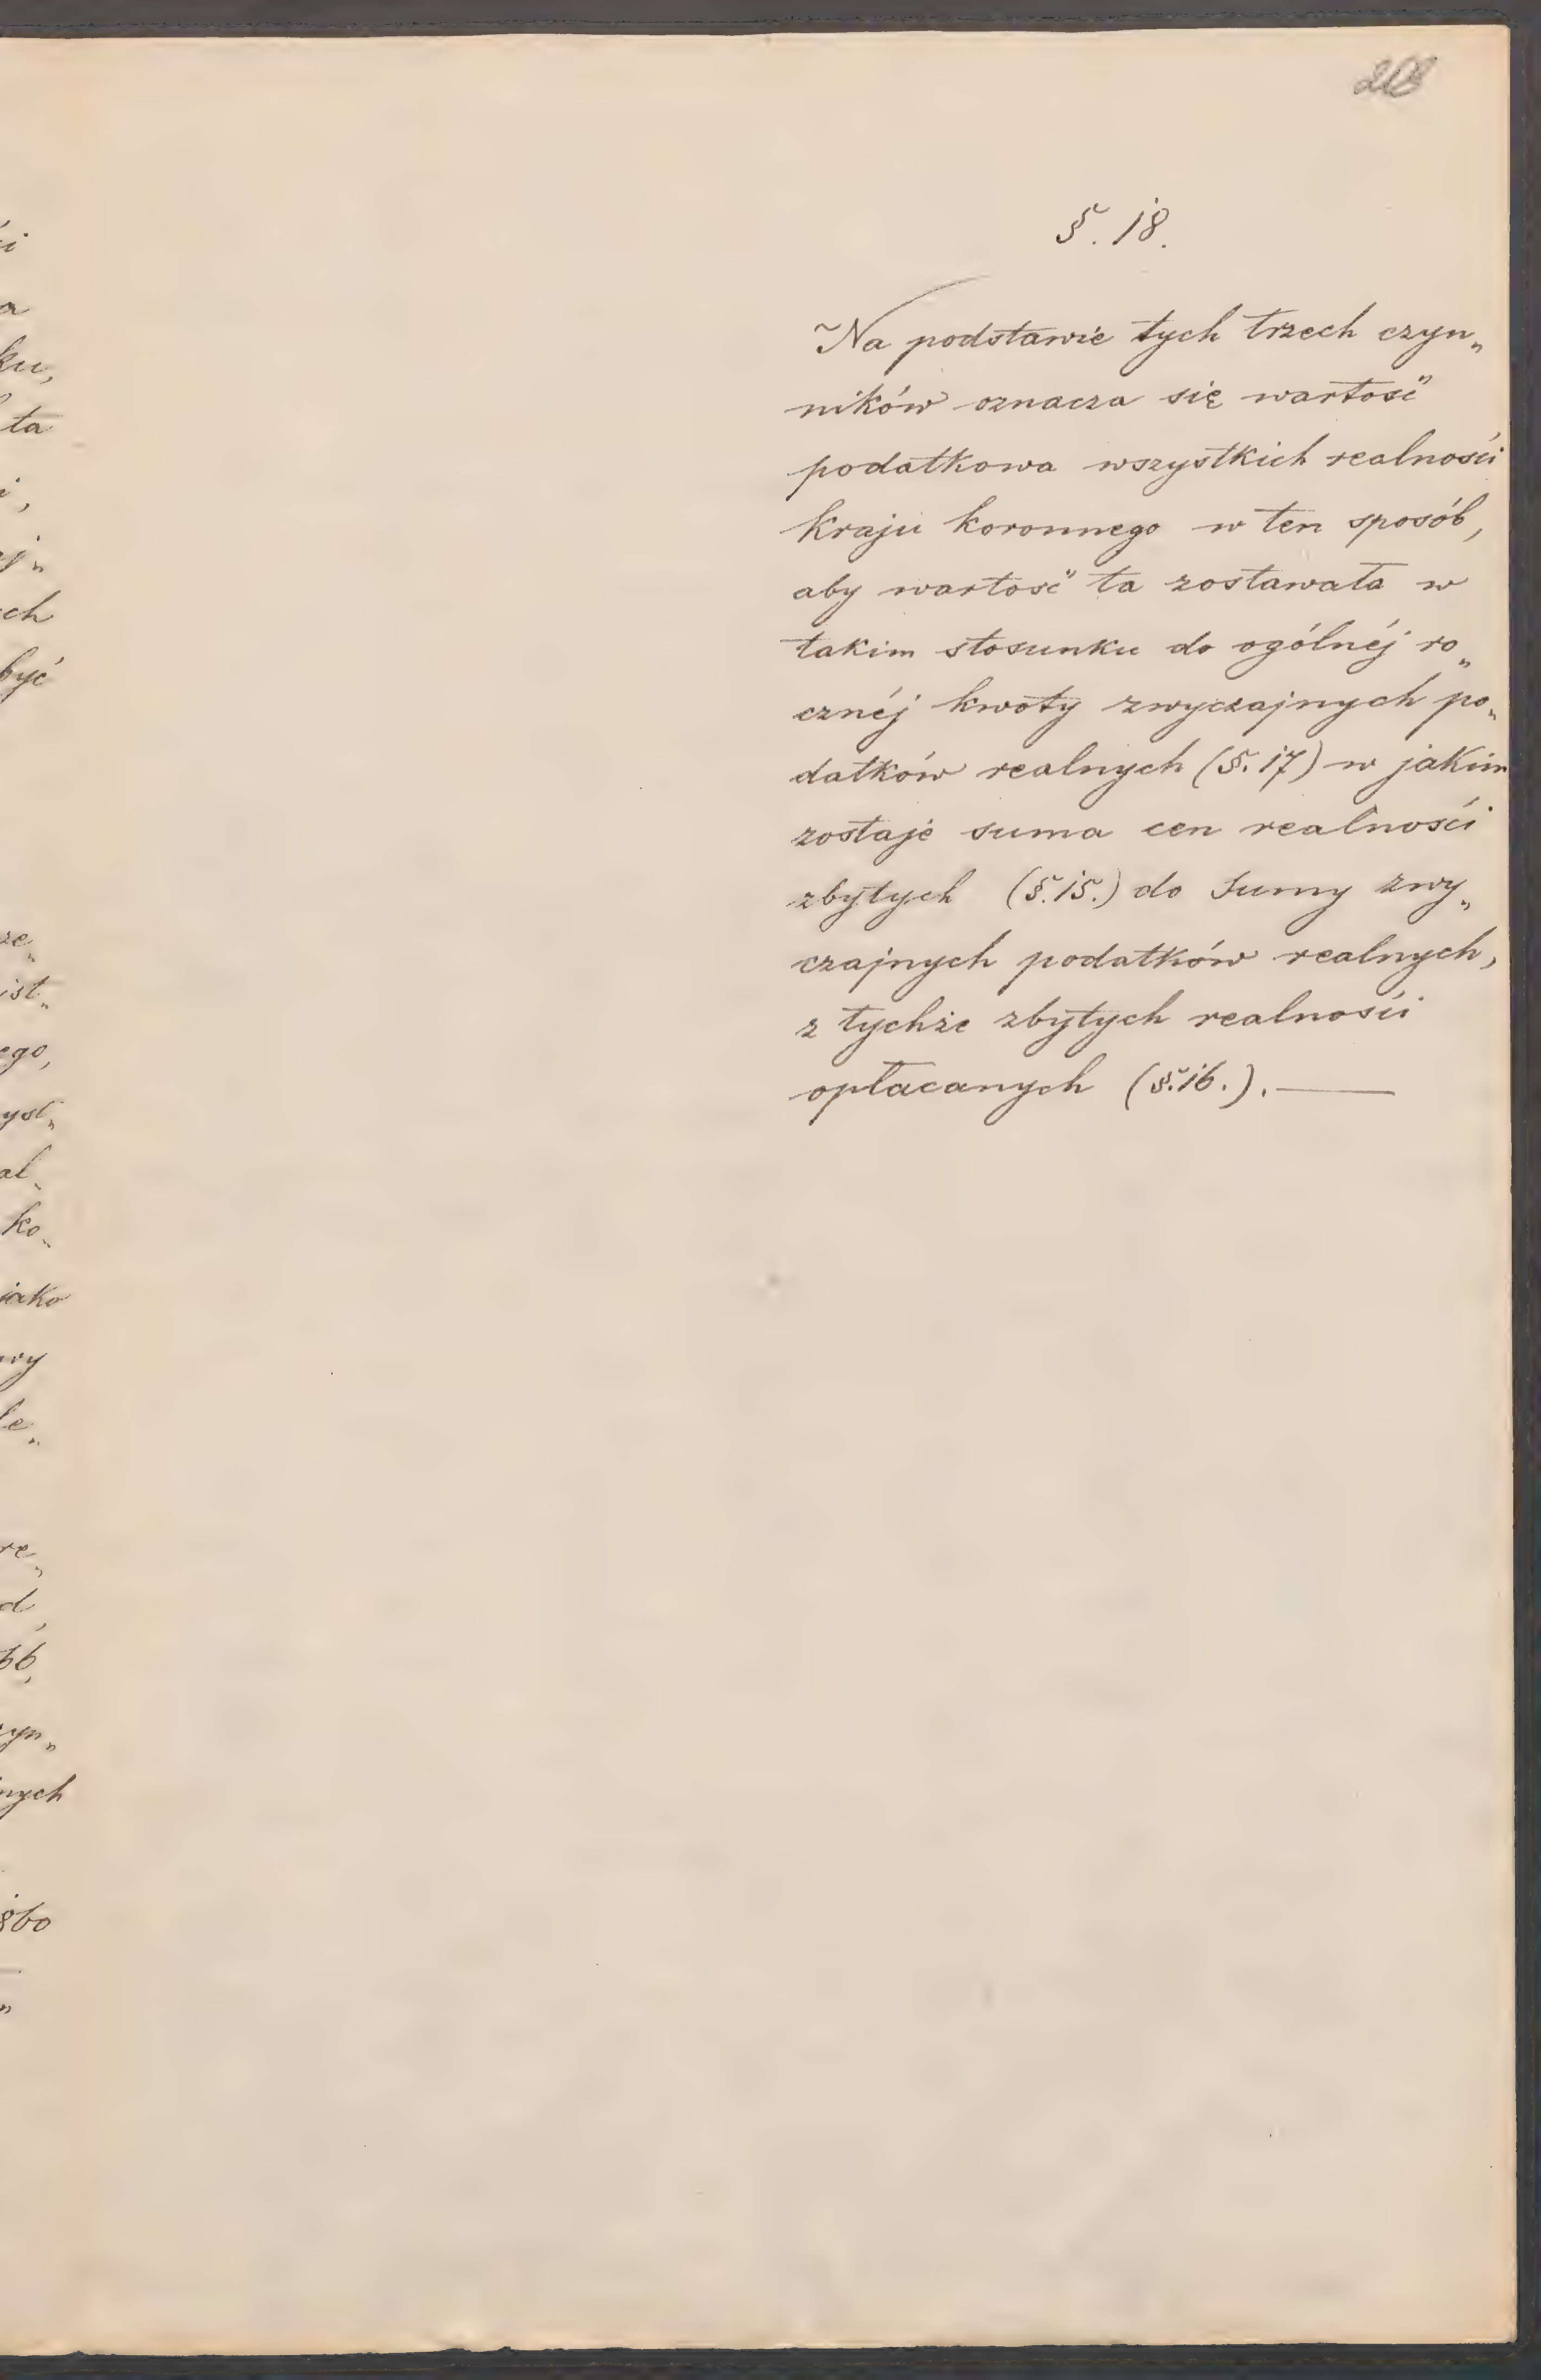 §. 18.
Na podstawie tych trzech czyn„
ników oznacza się wartość
podatkowa wszystkich realności
kraju koronnego w ten sposób,
aby wartość ta zostawała w
takim stosunku do ogólnéj ro„
cznéj kwoty zwyczajnych po„
datków realnych (§. 17) w jakim
zostaje suma cen realności
zbytych (§. 15.) do sumy zwy„
czajnych podatków realnych,
z tychże zbytych realności
opłacanych (§. 16.). —
ku,
ta
ch
być
ego,
ko„
jako
nych